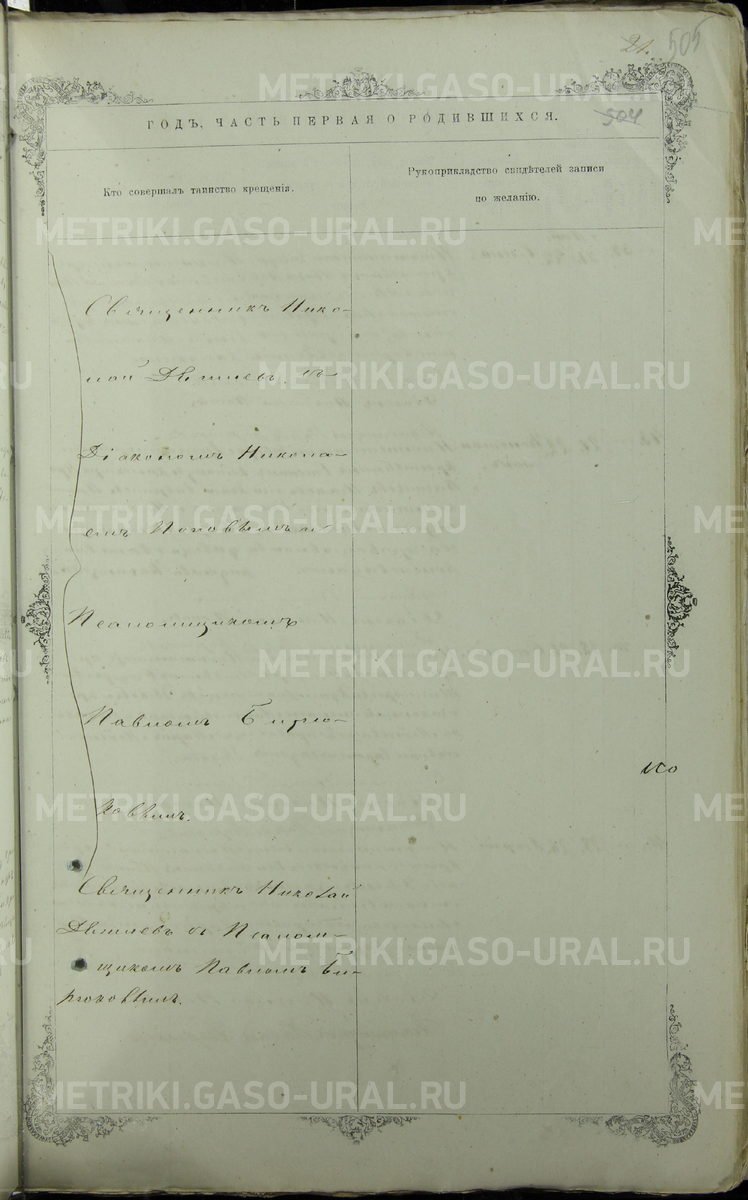 21. 505
504
ГОДЪ, ЧАСТЬ ПЕРВАЯ О РОДИВШИХСЯ.
Кто совершалъ таинство крещенія.
Рукоприкладство свидѣтелей записи
по желанію.
Священникъ Нико-
лай съ
Діакономъ Никола-
емъ Поповымъ и
Псаломщикомъ
Павломъ Бирю-
ковымъ.
Священникъ Николай
съ Псалом-
щикомъ Павломъ Би-
рюковымъ.
METRIKI.GASO-URAL.RU